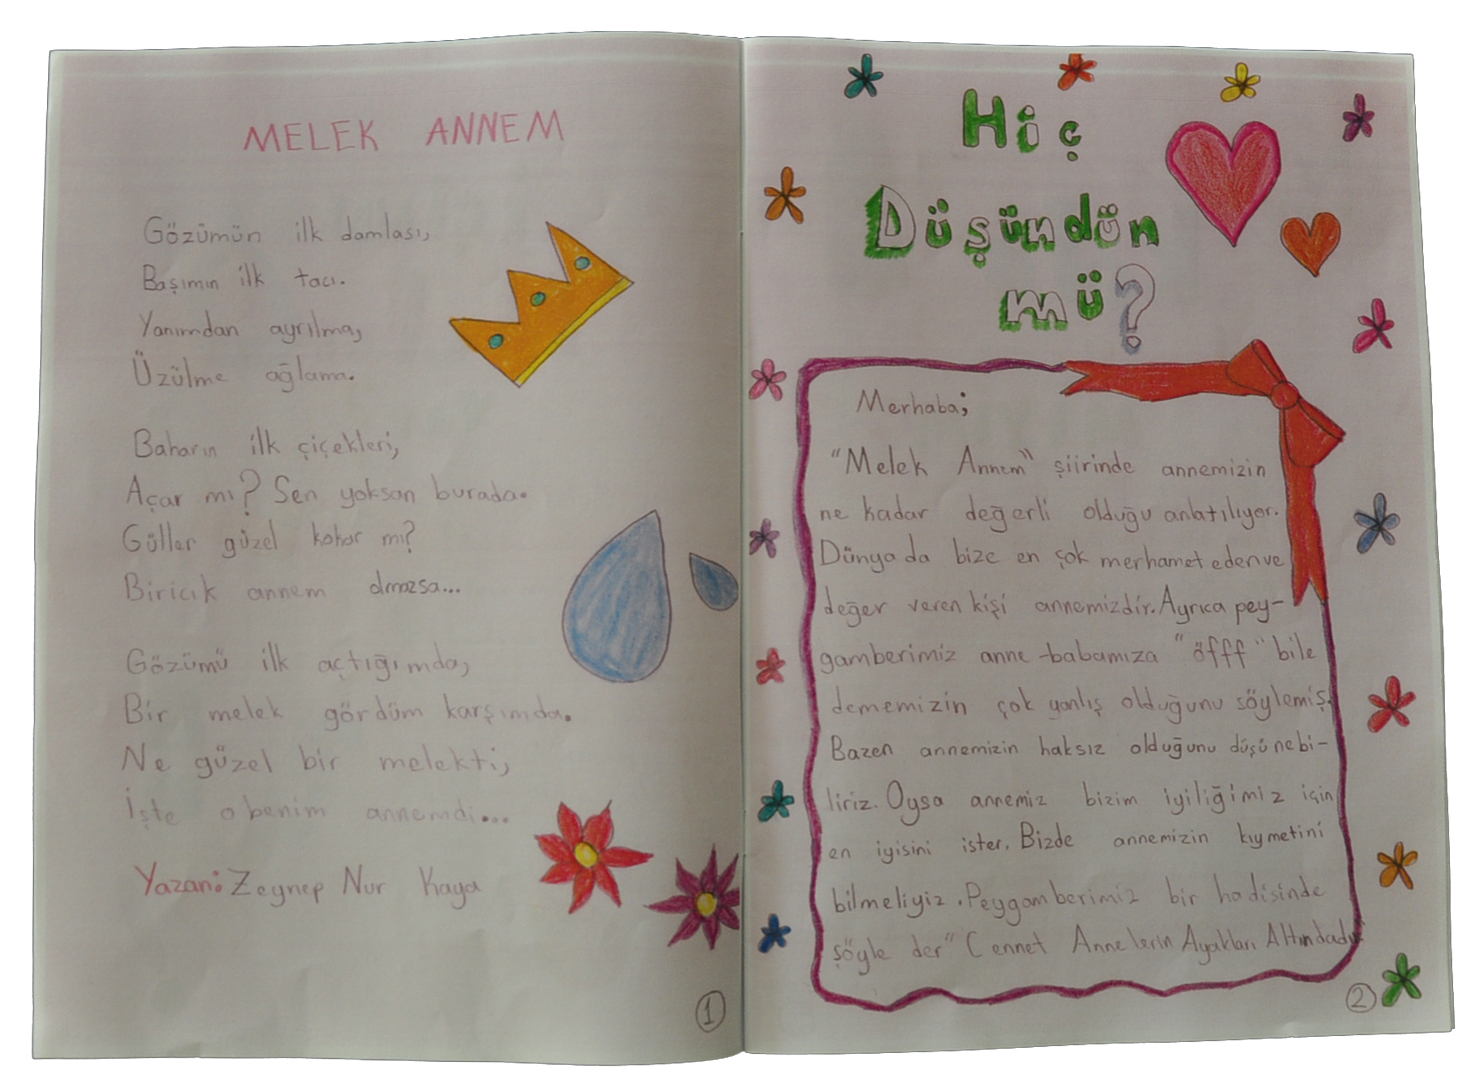 MELEK ANNEM
Gözümün ilk damlası,
Başımın ilk tacı.
Yanımdan ayrılma,
Üzülme ağlama.
Baharın ilk çiçekleri,
Açar mı? Sen yoksan burada.
Güller güzel kokar mı?
Biricik annem olmazsa...
Gözümü ilk açtığımda,
Bir melek gördüm karşımda.
Ne güzel bir melekti,
İşte o benim annemdi...
Yazan: Zeynep Nur Kaya
1
Hiç
Düşündün
mü?
Merhaba;
"Melek Annem" şiirinde annemizin
ne kadar değerli olduğu anlatılıyor.
Dünyada bize en çok merhamet eden ve
değer veren kişi annemizdir. Ayrıca pey-
gamberimiz anne-babamıza "öfff" bile
dememizin çok yanlış olduğunu söylemiş.
Bazen annemizin haksız olduğunu düşünebi-
liriz. Oysa annemiz bizim iyiliğimiz için
en iyisini ister. Bizde annemizin kıymetini
bilmeliyiz. Peygamberimiz bir hadisinde
şöyle der "Cennet Annelerin Ayakları Altındadır
2